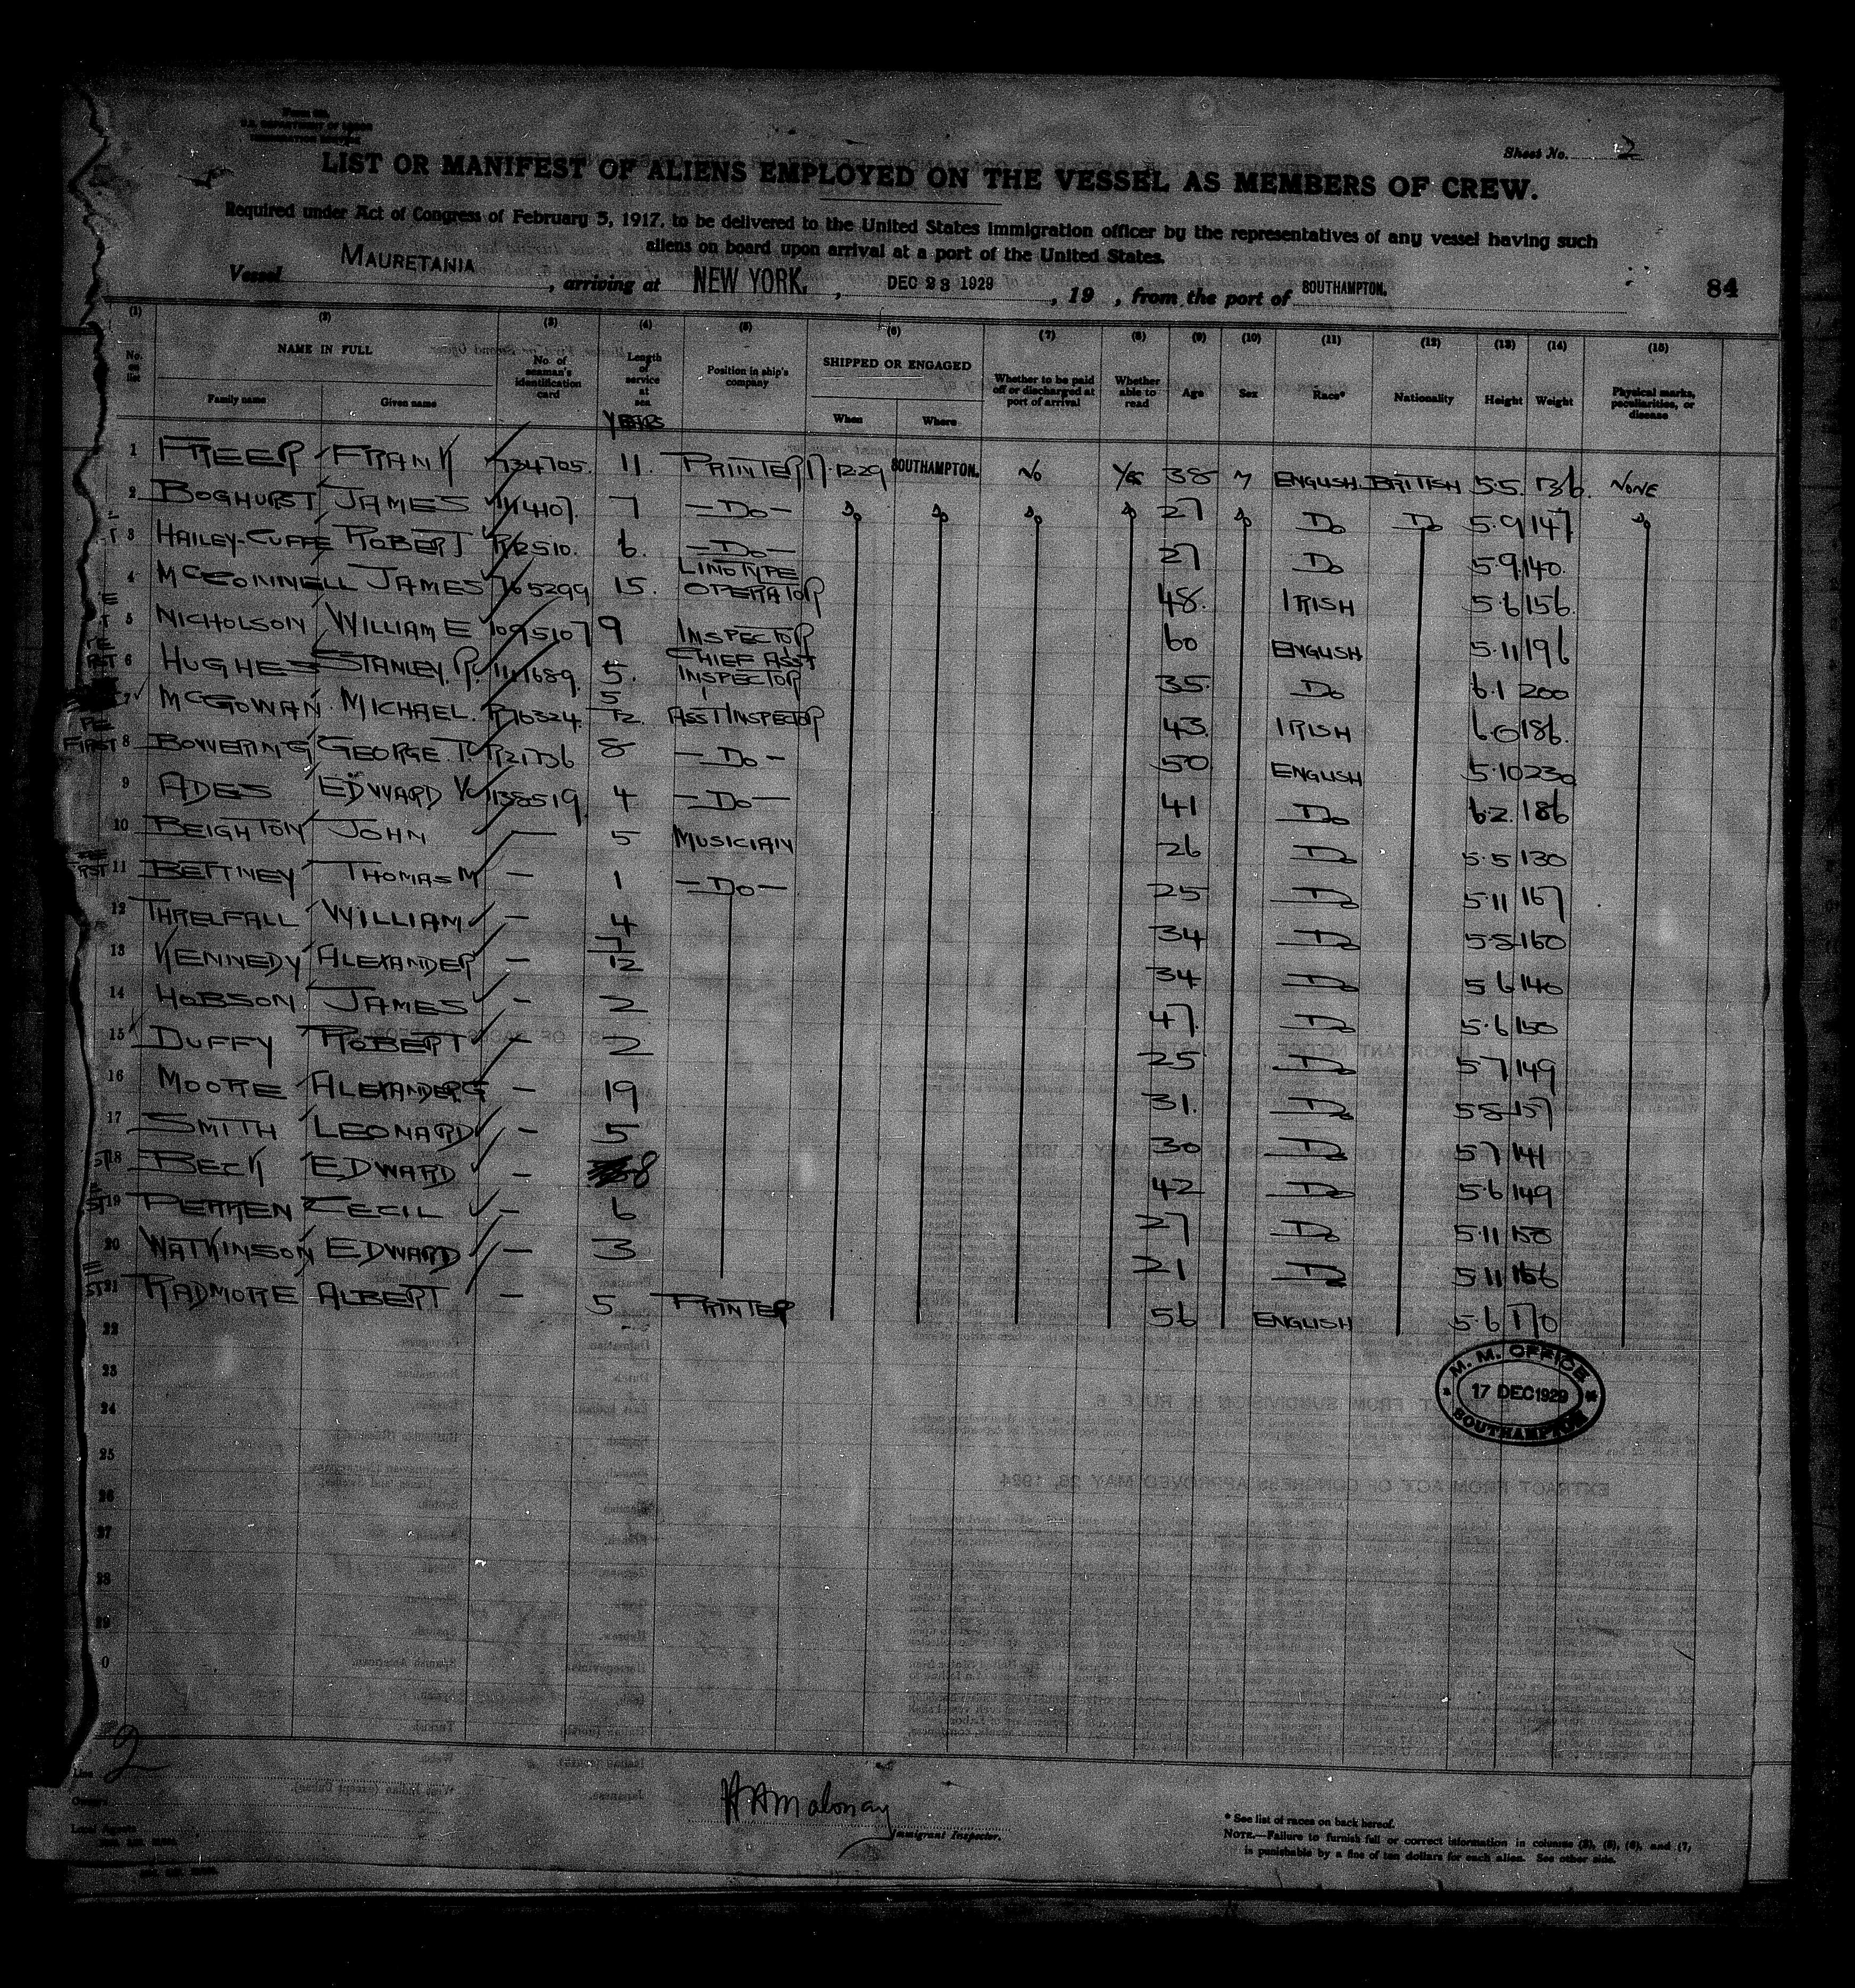 Sheet No. 2
LIST OR MANIFEST OF ALIENS EMPLOYED ON THE VESSEL AS MEMBERS OF CREW.
Required under Act of Congress of February 5, 1917, to be delivered to the United States immigration officer by the representatives of any vessel having such
aliens on board upon arrival at a port of the United States.
Vessel MAURETANIA, arriving at NEW YORK, DEC 23 1929, 19 , from the port of SOUTHAMPTON.
84
(1) (2) (3) (4) (5) (6) (7) (8) (9) (10) (11) (12) (13) (14) (15)
No. on list NAME IN FULL Family name Given name No. of seaman's identification card Length of service at sea YEARS Position in ship's company SHIPPED OR ENGAGED When Where Whether to be paid off or discharged at port of arrival Whether able to read Age Sex Race* Nationality Height Weight Physical marks, peculiarities, or disease
1 FREER FRANK 734705. 11. PRINTER 17.12.29 SOUTHAMPTON. NO YES 38 M ENGLISH. BRITISH 5.5. 136. NONE
2 BOGHURST JAMES 7 -DO- DO DO DO DO 27 DO DO DO 5.9 147 DO
3 HAILEY-CUFFE ROBERT 6. -DO- 27 DO 5.9 140.
4 MCCONNELL JAMES 765299 15. LINOTYPE OPERATOR 48. IRISH 5.6 156.
5 NICHOLSON WILLIAM E 1095107 9 INSPECTOR 60 ENGLISH 5.11 196
6 HUGHES STANLEY. R. 5. CHIEF ASST INSPECTOR 35. DO 6.1 200
7 MCGOWAN MICHAEL. 5/12. ASST INSPECTOR 43. IRISH 6.0 186.
FIRST 8 BOWERING GEORGE T. 8 -DO- 50 ENGLISH 5.10 230
9 ADES EDWARD 4 -DO- 41 DO 6.2. 186
10 BEIGHTON JOHN — 5 MUSICIAN 26 DO 5.5 130
11 BETTNEY THOMAS M — 1 -DO- 25 DO 5.11 167
12 THRELFALL WILLIAM — 4 34 DO 5.8 160
13 KENNEDY ALEXANDER — 34 DO 5 6 140
14 HOBSON JAMES — 2 47 DO 5.6 150
15 DUFFY ROBERT — 2 25 DO 5.7 149
16 MOORE ALEXANDER G — 19 31. DO 5 8 157
17 SMITH LEONARD — 5 30 DO 5 7 141
18 BECK EDWARD — 8 42 DO 5.6 149
19 PERREN CECIL — 6 27 DO 5.11 158
20 WATKINSON EDWARD — 3 21 DO 5 11 166
21 RADMORE ALBERT — 5 PRINTER 56 ENGLISH 5.6 170
22
23
24
25
26
27
28
29
0
M. M. OFFICE
17 DEC 1929
SOUTHAMPTON
2
Immigrant Inspector.
* See list of races on back hereof.
NOTE.—Failure to furnish full or correct information in columns (2), (5), (6), and (7)
is punishable by a fine of ten dollars for each alien. See other side.